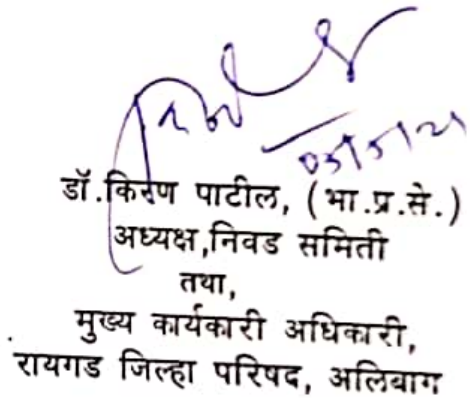 डॉ.किरण पाटील, (भा.प्र.से.)
अध्यक्ष,निवड समिती
तथा,
मुख्य कार्यकारी अधिकारी,
रायगड जिल्हा परिषद, अलिबाग